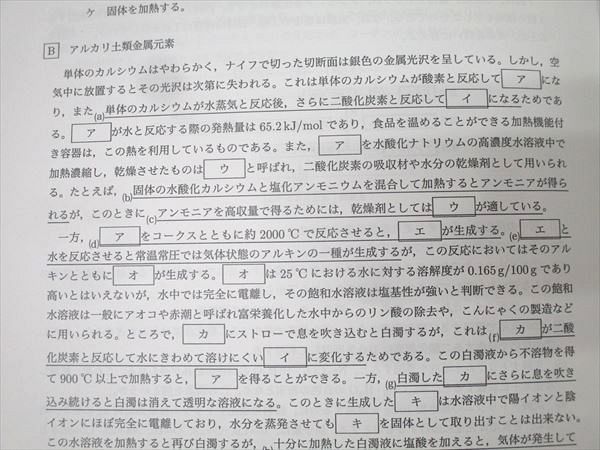 ケ 固体を加熱する。
B アルカリ土類金属元素
単体のカルシウムはやわらかく，ナイフで切った切断面は銀色の金属光沢を呈している。しかし，空
気中に放置するとその光沢は次第に失われる。これは単体のカルシウムが酸素と反応して ア にな
り，また(a)単体のカルシウムが水蒸気と反応後，さらに二酸化炭素と反応して イ になるためであ
る。 ア が水と反応する際の発熱量は 65.2 kJ/mol であり，食品を温めることができる加熱機能付
き容器は，この熱を利用しているものである。また， ア を水酸化ナトリウムの高濃度水溶液中で
加熱濃縮し，乾燥させたものは ウ と呼ばれ，二酸化炭素の吸収材や水分の乾燥剤として用いられ
る。たとえば，(b)固体の水酸化カルシウムと塩化アンモニウムを混合して加熱するとアンモニアが得ら
れるが，このときに(c)アンモニアを高収量で得るためには，乾燥剤としては ウ が適している。
一方，(d) ア をコークスとともに約 2000 ℃ で反応させると， エ が生成する。(e) エ と
水を反応させると常温常圧では気体状態のアルキンの一種が生成するが，この反応においてはそのアル
キンとともに オ が生成する。 オ は 25 ℃ における水に対する溶解度が 0.165 g/100 g であり
高いとはいえないが，水中では完全に電離し，その飽和水溶液は塩基性が強いと判断できる。この飽和
水溶液は一般にアオコや赤潮と呼ばれ富栄養化した水中からのリン酸の除去や，こんにゃくの製造など
に用いられる。ところで， カ にストローで息を吹き込むと白濁するが，これは(f) カ が二酸
化炭素と反応して水にきわめて溶けにくい イ に変化するためである。この白濁液から不溶物を得
て 900 ℃ 以上で加熱すると， ア を得ることができる。一方，(g)白濁した カ にさらに息を吹き
込み続けると白濁は消えて透明な溶液になる。このときに生成した キ は水溶液中で陽イオンと陰
イオンにほぼ完全に電離しており，水分を蒸発させても キ を固体として取り出すことは出来ない。
この水溶液を加熱すると再び白濁するが，(h)十分に加熱した白濁液に塩酸を加えると，気体が発生して